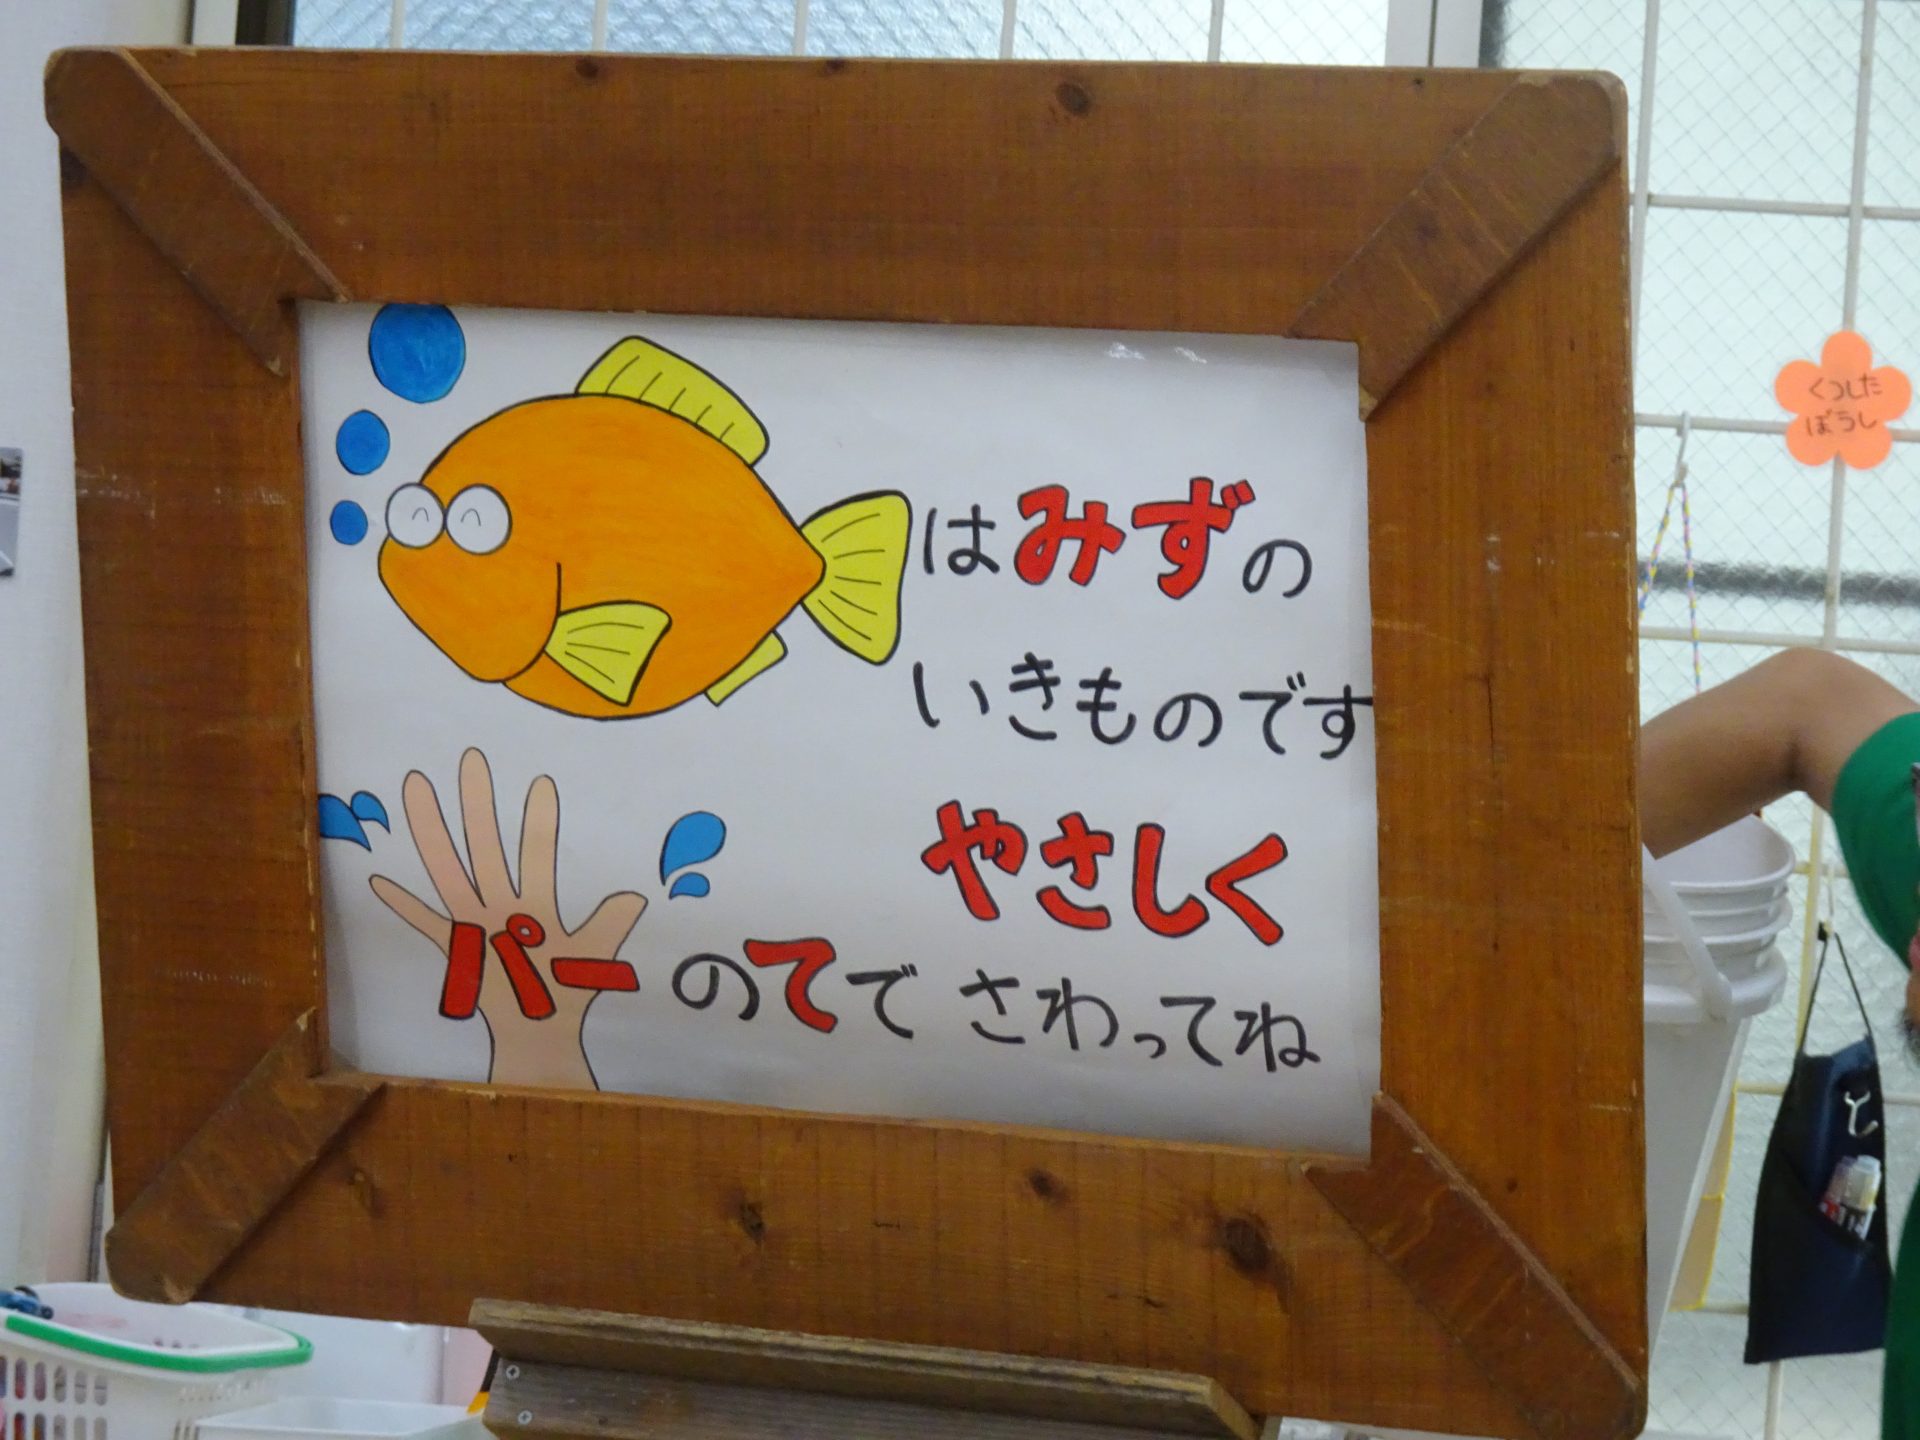 はみずの
いきものです
やさしく
パーのてで さわってね
くつした
ぼうし